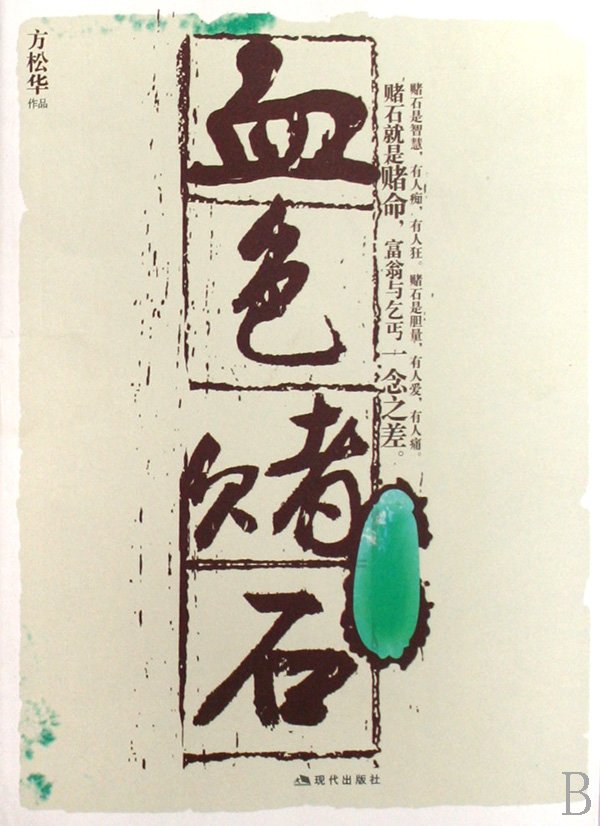 赌石是智慧，有人痴，有人狂。赌石是胆量，有人爱，有人痛。
赌石就是赌命，富翁与乞丐一念之差。
血色赌石
方松华
作品
现代出版社
B